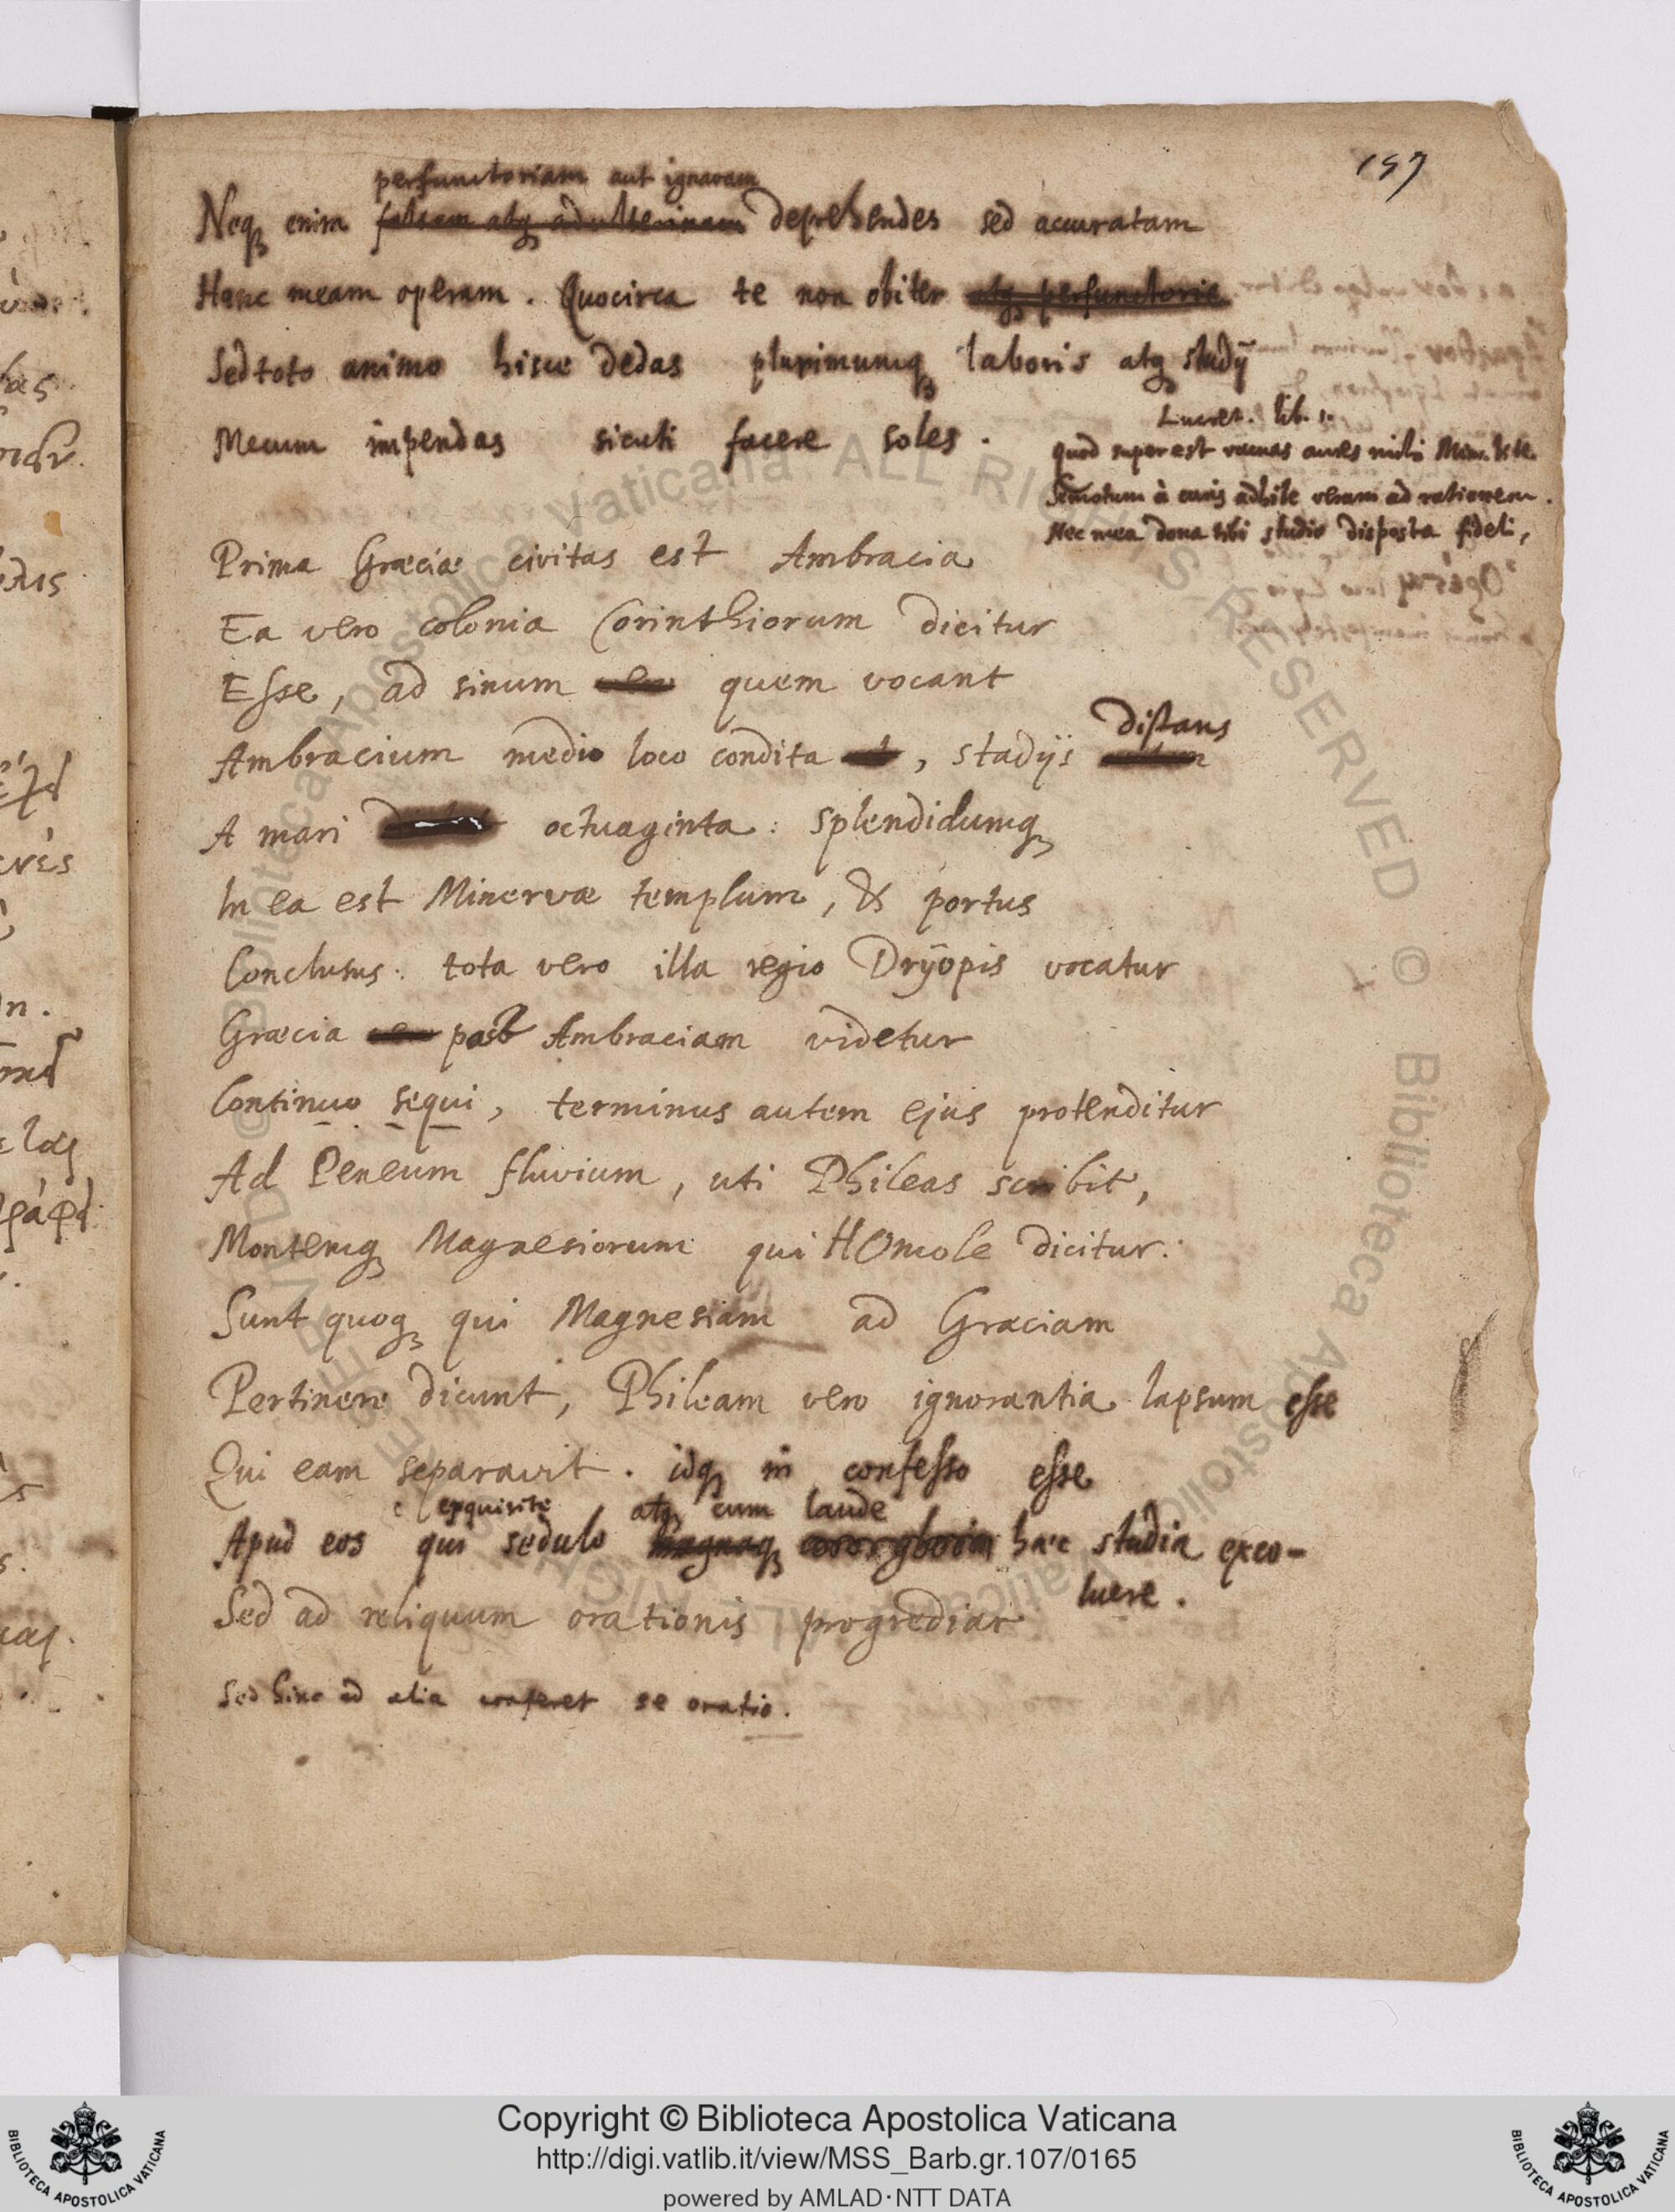 157
perfunctoriam aut ignavam
Neq3 enim falsam atq3 adulterinam deprehendes sed accuratam
Hanc meam operam. Quocirca te non obiter atq3 perfunctorie
Sed toto animo hisce dedas plurimumq3 laboris atq3 studij
Mecum impendas sicuti facere soles.
Lucret. lib. 1.
quod superest vacuas aures mihi Mem. & te.
Semotum à curis adhibe veram ad rationem.
Nec mea dona tibi studio disposta fideli,
Prima Græciæ civitas est Ambracia
Ea vero colonia Corinthiorum dicitur
Esse, ad sinum quem vocant
distans
Ambracium medio loco condita, stadijs
A mari octuaginta: splendidumq3
In ea est Minervæ templum, & portus
Conclusus: tota vero illa regio Dryopis vocatur
Græcia post Ambraciam videtur
Continuo sequi, terminus autem ejus protenditur
Ad Peneum fluvium, uti Phileas scribit,
Montemq3 Magnesiorum qui HOmole dicitur:
Sunt quoq3 qui Magnesiam ad Græciam
Pertinere dicunt, Phileam vero ignorantia lapsum esse
Qui eam separavit. idq3 in confesso esse
exquisite atq3 cum laude
Apud eos qui sedulo magnaq3 hæc studia exco-
luere.
Sed ad reliquum orationis progrediar
Sed hinc ad alia conferet se oratio.
Copyright © Biblioteca Apostolica Vaticana
http://digi.vatlib.it/view/MSS_Barb.gr.107/0165
powered by AMLAD·NTT DATA